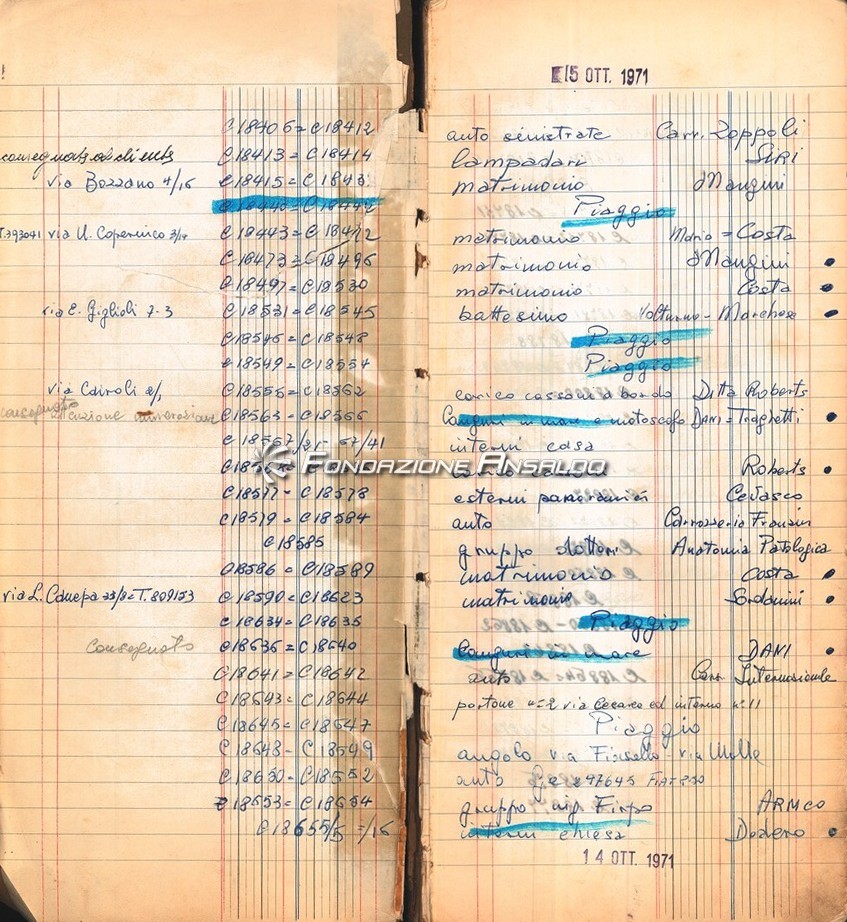 15 OTT. 1971
C18406 = C18412 auto sinistrate Carr. Zoppoli
consegnato al cliente C18413 = C18414 lampadari SIRI
via Bozzano 4/16 C18415 = C1843 matrimonio Mangini
Piaggio
T.393041 via N. Copernico 3/14 C18443 = C18472 matrimonio Mario = Costa
C18473 = C18496 matrimonio Mangini
C18497 = C18530 matrimonio Costa
via E. Giglioli 7-3 C18531 = C18545 battesimo Volturno - Marchese
C18546 = C18548 Piaggio
C18549 = C18554 Piaggio
via Cairoli 2/1 C18555 = C18562 carico cassa a bordo Ditta Roberts
consegnato C18563 - C18566 Canguri in mare e motoscafo DANI = Traghetti
C18567/ 67/41 interni casa
FONDAZIONE ANSALDO
Roberts
C18577 = C18578 esterni panoramici Cevasco
C18579 = C18584 auto Carrozzeria
C18585 gruppo dottori Anatomia Patologica
C18586 = C18589 matrimonio Costa
via L. Canepa 23/8 = T. 809153 C18590 = C18623 matrimonio Sordanini
C18634 = C18635 Piaggio
Consegnato C18636 = C18640 Canguri in mare DANI
C18641 = C18642 auto Carr. Internazionale
C18643 = C18644 portone n=2 via Cesarea ed interno n. 11
C18645 = C18647 Piaggio
C18648 - C18549 angolo via Fiasella - via
C18650 = C18552 auto Ge 297645
C18653 = C18654 gruppo Firpo ARMCO
C18655/5 = /16 interni chiesa Dodero
14 OTT. 1971